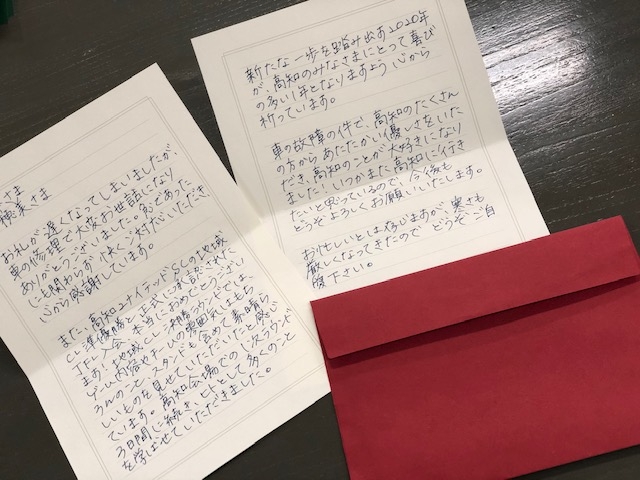 さま
さま
お礼が遅くなってしまいましたが、
車の修理で大変お世話になり
ありがとうございました。急であった
にも関わらず快くご対応いただき、
心から感謝しています。
また、高知ユナイテッドSCの地域
CL準優勝と正式に承認された
JFL入会、本当におめでとうござい
ます!地域CL決勝ラウンドでは、
ゲーム内容やチームの雰囲気はもち
ろんのこと、スタンドも含めて素晴ら
しいものを見せていただいたと感じ
ています。高知会場での1次ラウンド
3日間に続き、ヒトとして多くのこと
を学ばせていただきました。
新たな一歩を踏み出す2020年
が、高知のみなさまにとって喜び
の多い1年となりますよう心から
祈っています。
車の故障の件で、高知のたくさん
の方からあたたかい優しさをいた
だき、高知のことが大好きになり
ました!いつかまた高知に行き
たいと思っているので、今後も
どうぞよろしくお願いいたします。
お忙しいとは存じますが、寒さも
厳しくなってきたので どうぞご自
愛下さい。